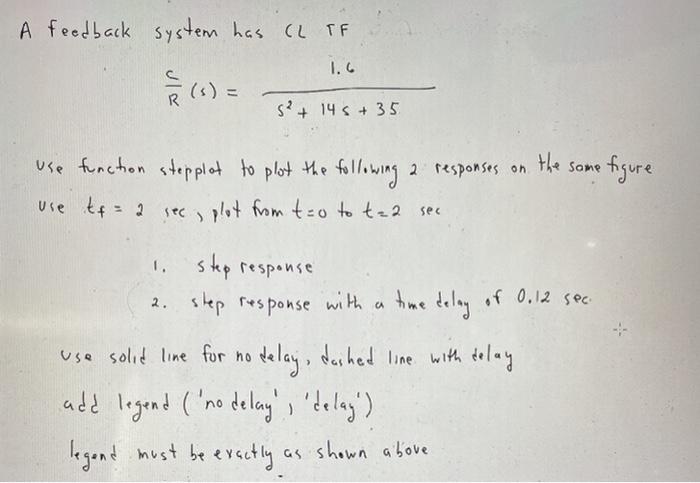 A feedback system has CL TF
C/R (s) = 1.6 / s² + 14s + 35
use function stepplot to plot the following 2 responses on the same figure
use tf = 2 sec, plot from t=0 to t=2 sec
1. step response
2. step response with a time delay of 0.12 sec.
use solid line for no delay, dashed line with delay
add legend ('no delay', 'delay')
legend must be exactly as shown above